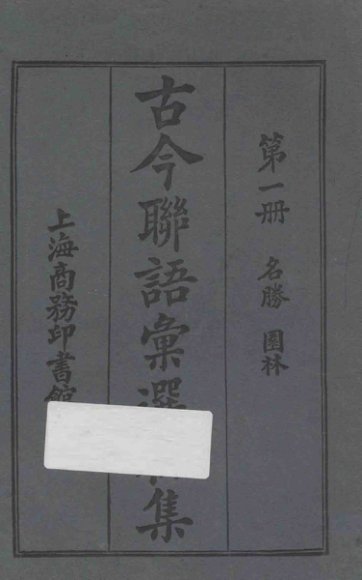 第一冊 名勝 園林
古今聯語彙選集
上海商務印書館